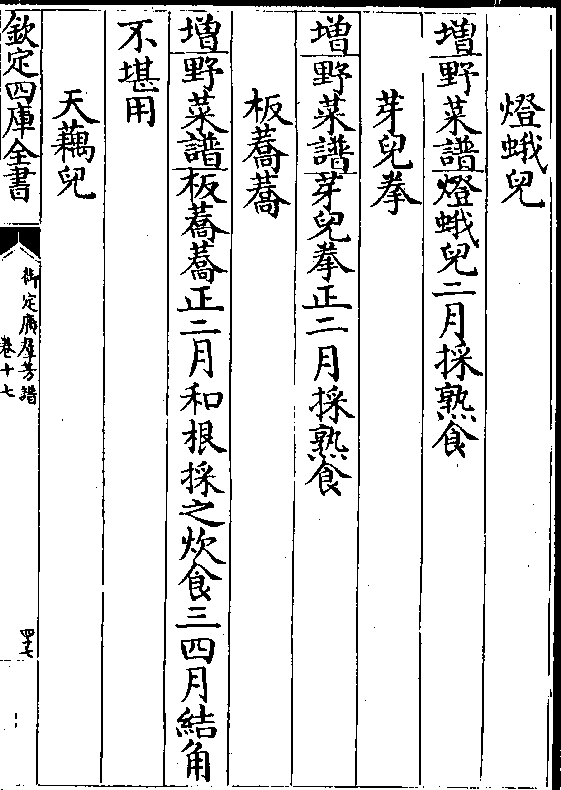 燈蛾兒
增野菜譜燈蛾兒二月採熟食
芽兒拳
增野菜譜芽兒拳正二月採熟食
板蕎蕎
增野菜譜板蕎蕎正二月和根採之炊食三四月結角
不堪用
天藕兒
欽定四庫全書
御定廣群芳譜
卷十七
四七